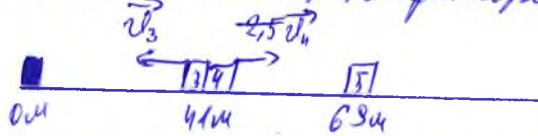 v⃗₃ 2,5v⃗₄
3 4 5
0м 41м 69м